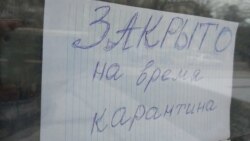 ЗАКРЫТО
на время
карантина